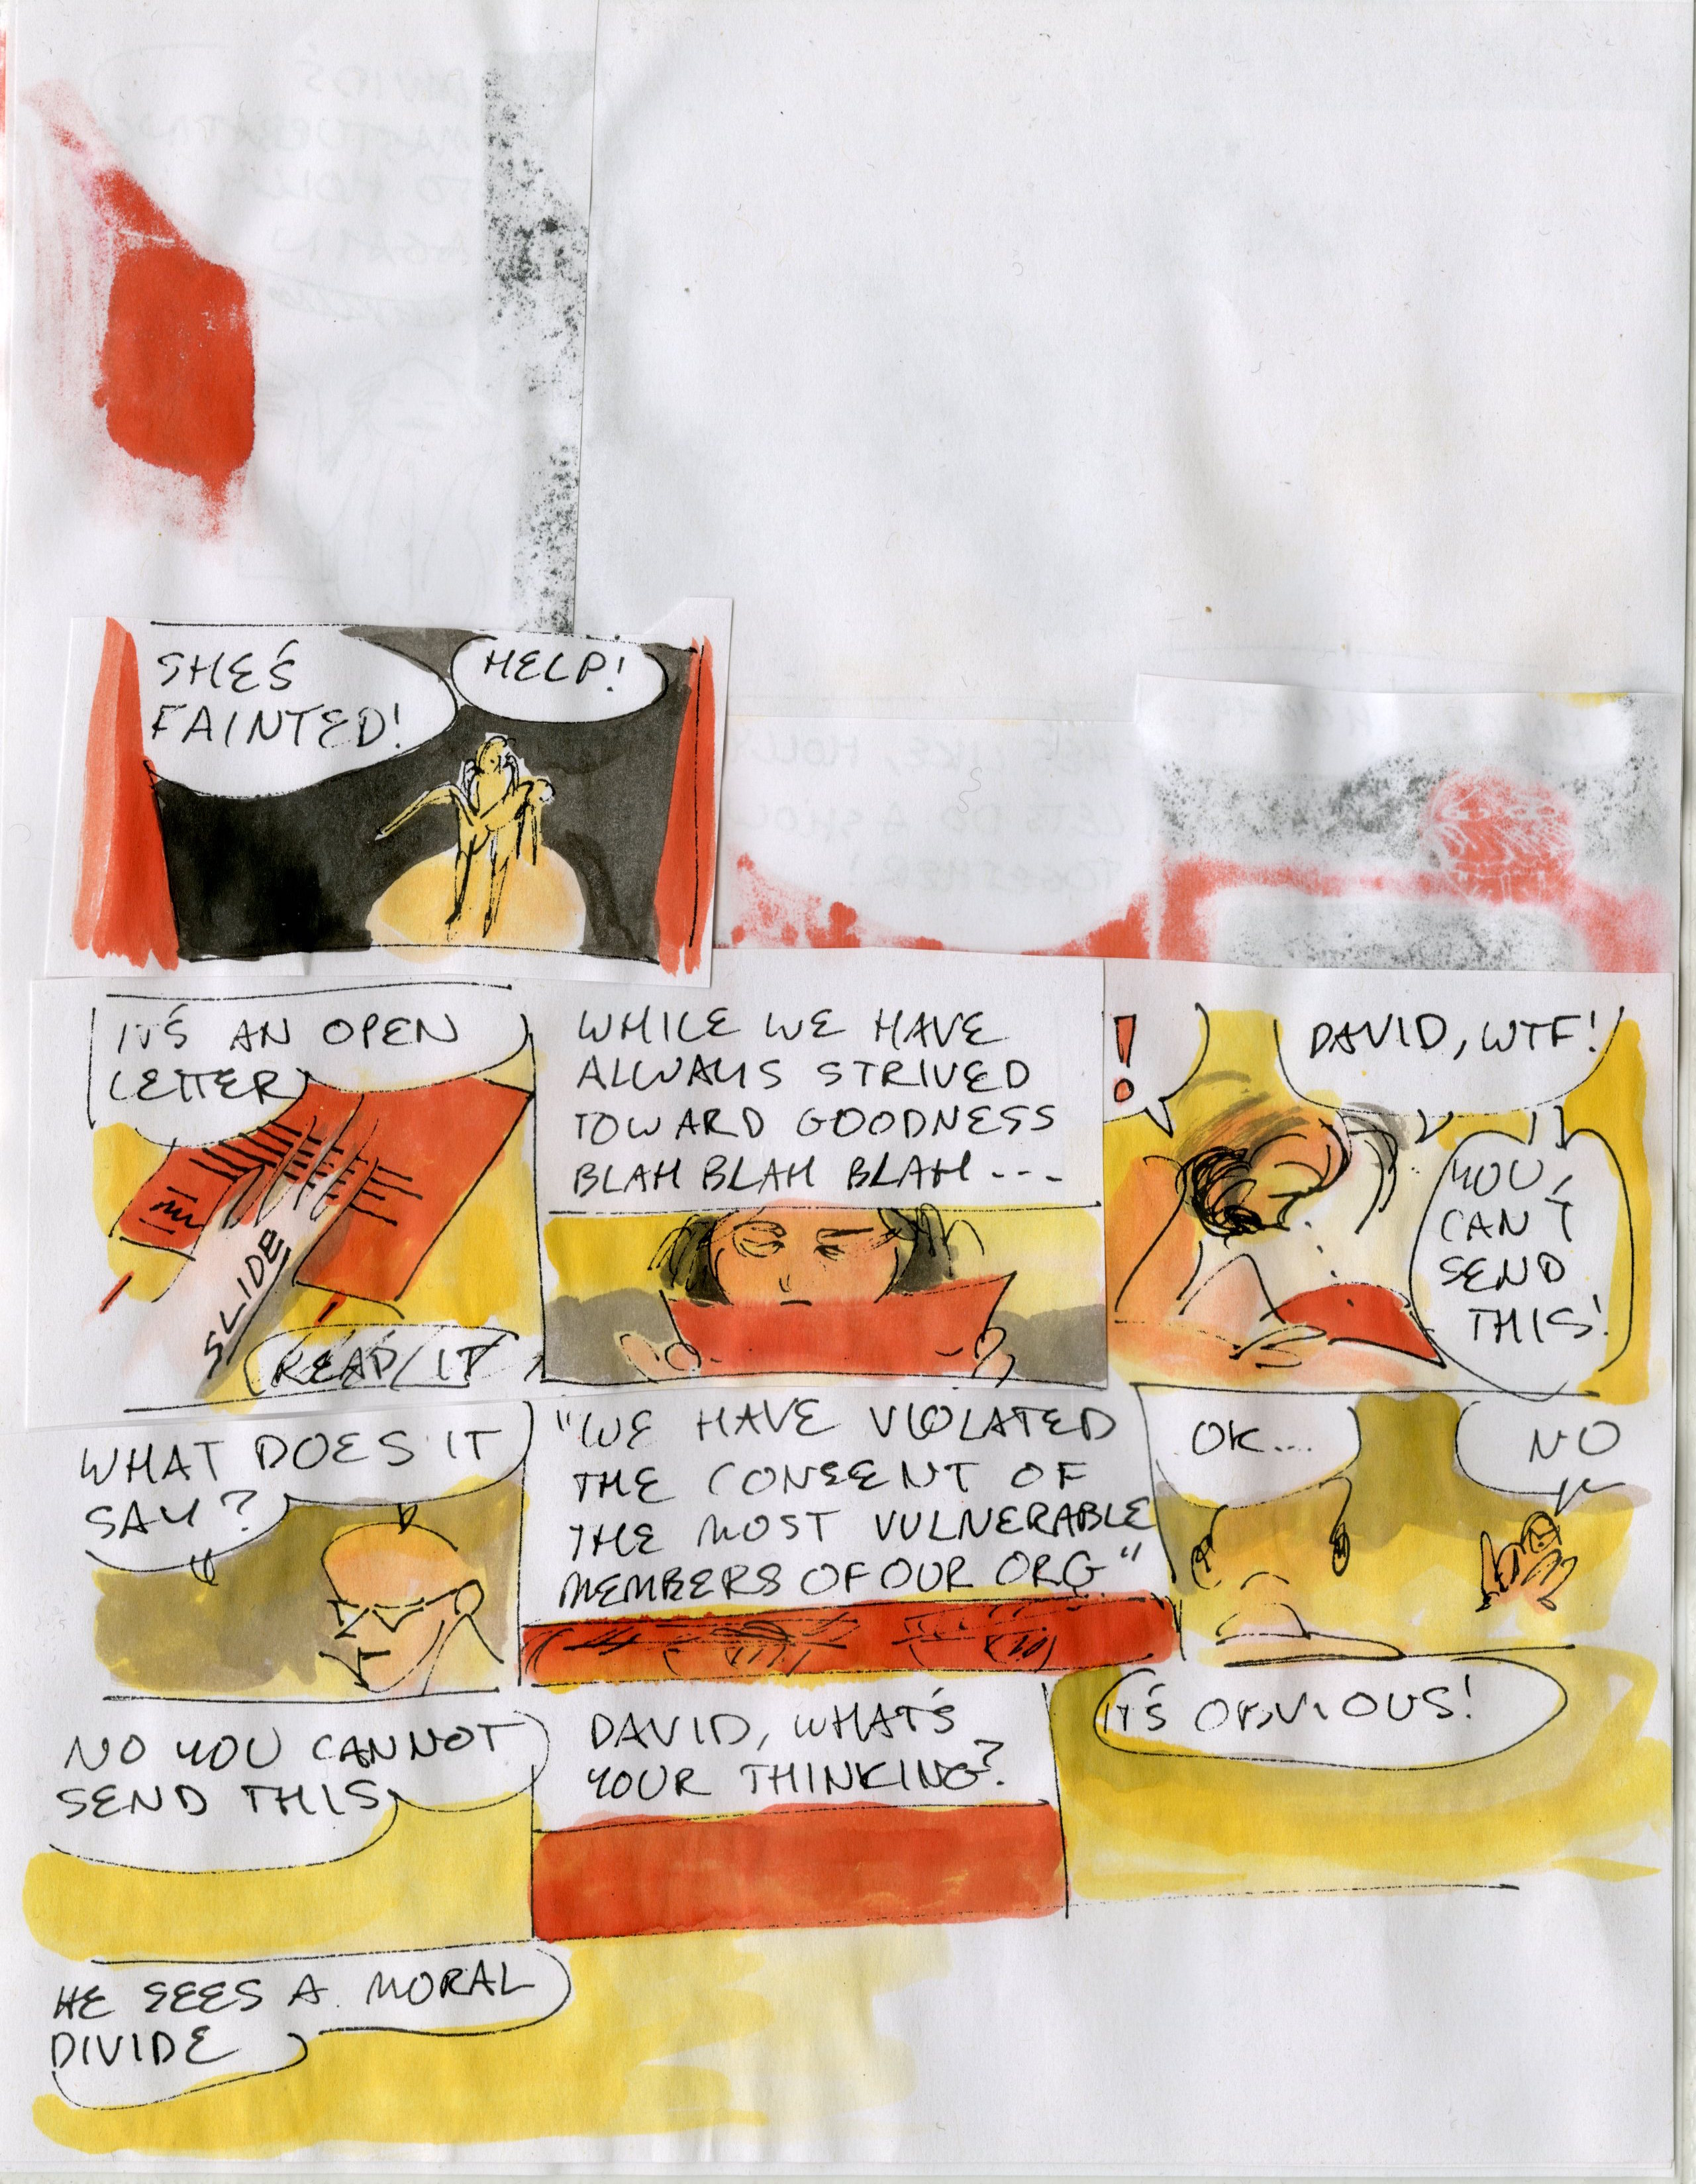 SHE'S
FAINTED!
HELP!
IT'S AN OPEN
LETTER
SLIDE
READ IT
WHILE WE HAVE
ALWAYS STRIVED
TOWARD GOODNESS
BLAH BLAH BLAH ---
!
DAVID, WTF!
YOU,
CAN'T
SEND
THIS!
WHAT DOES IT
SAY?
"WE HAVE VIOLATED
THE CONSENT OF
THE MOST VULNERABLE
MEMBERS OF OUR ORG"
OK....
NO
NO YOU CANNOT
SEND THIS
DAVID, WHAT'S
YOUR THINKING?
IT'S OBVIOUS!
HE SEES A MORAL
DIVIDE